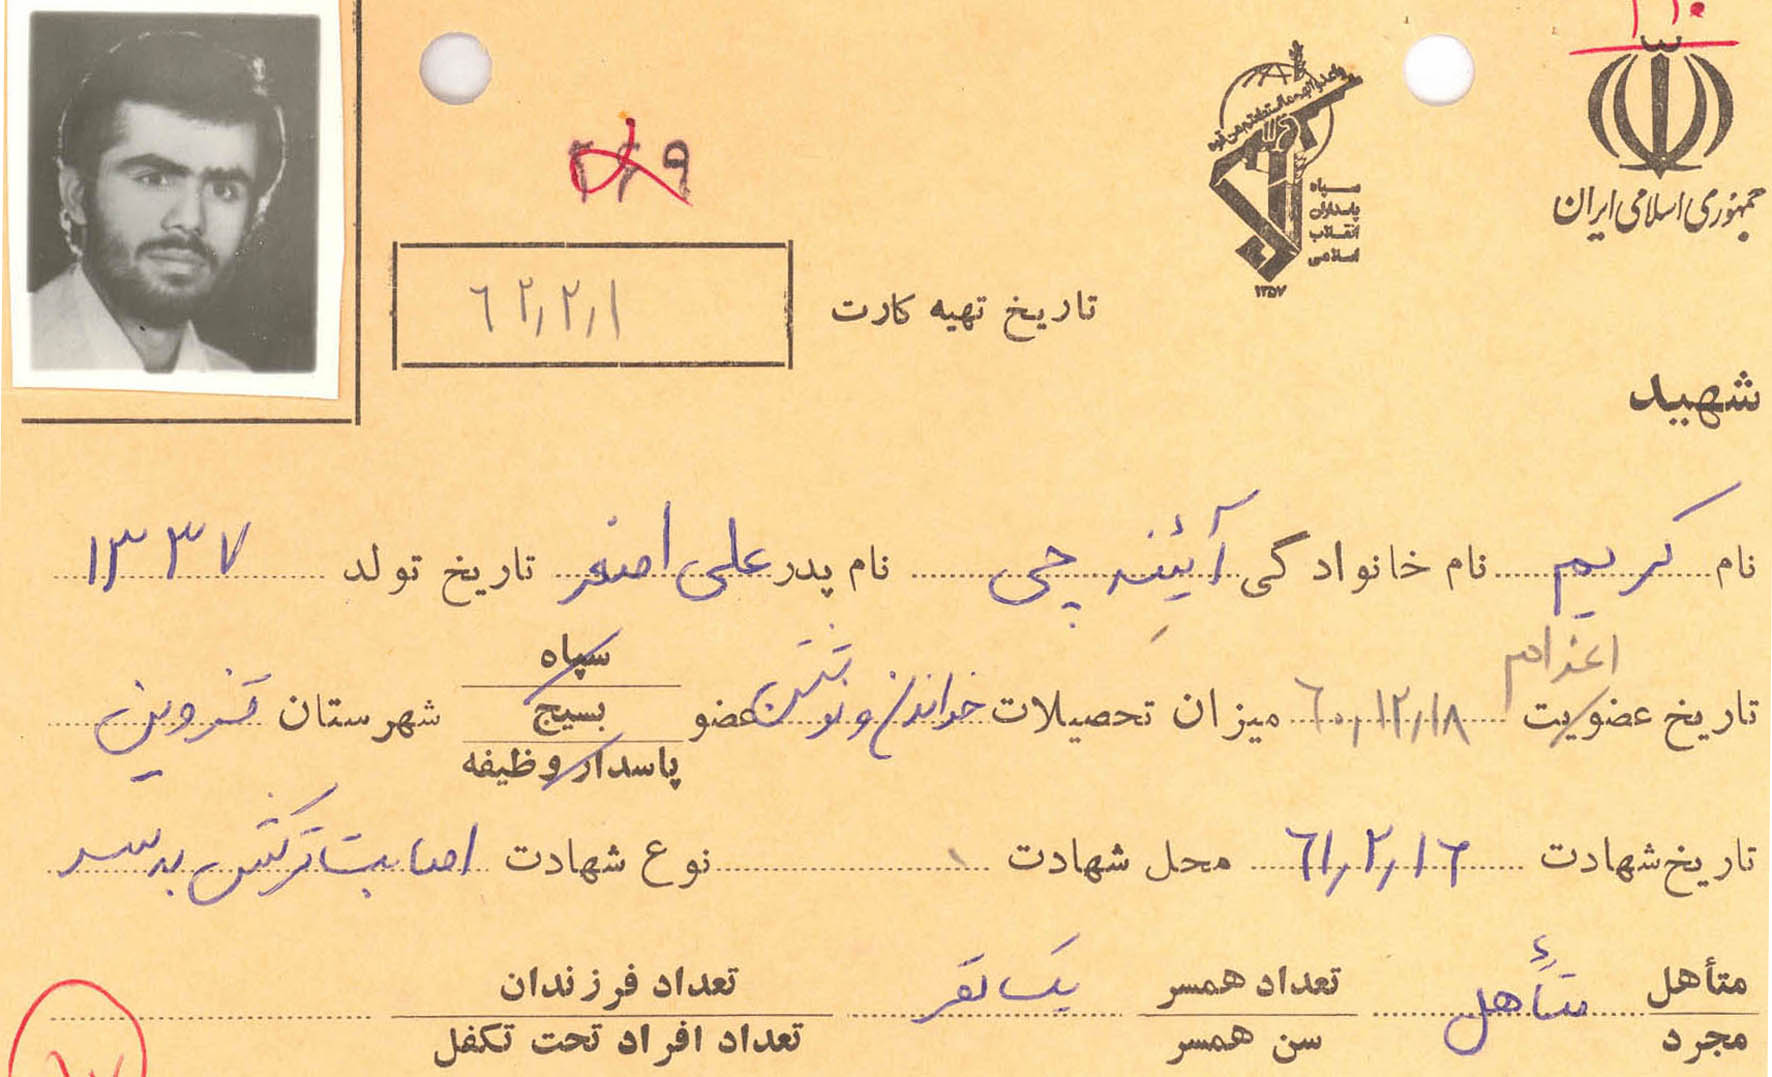 ۱۱۰
جمهوری اسلامی ایران
سپاه
پاسداران
انقلاب
اسلامی
۱۳۵۷
۲۱۹
تاریخ تهیه کارت ۶۲٫۲٫۱
شهید
نام کریم نام خانوادگی آئینه چی نام پدر علی اصغر تاریخ تولد ۱۳۳۷
اعزام
تاریخ عضویت ۶۰٫۱۲٫۱۸ میزان تحصیلات خواندن و نوشتن عضو سپاه بسیج پاسدار وظیفه شهرستان قزوین
تاریخ شهادت ۶۱٫۲٫۱۶ محل شهادت نوع شهادت اصابت ترکش به سر
متأهل مجرد متأهل تعداد همسر سن همسر یک نفر تعداد فرزندان تعداد افراد تحت تکفل